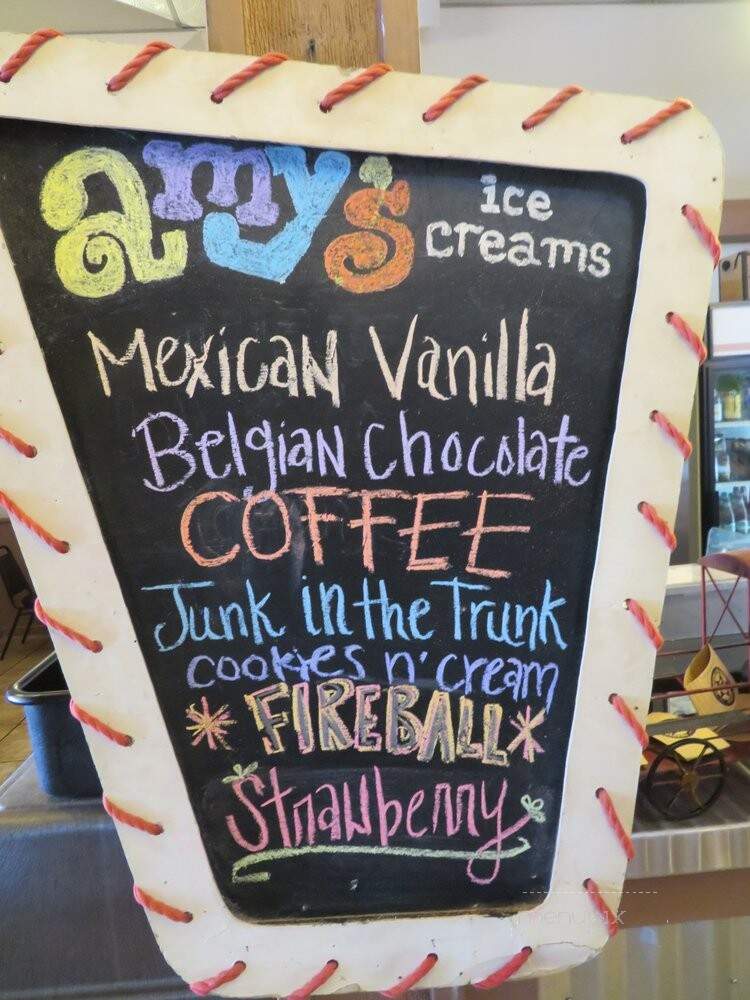 amy's ice creams
Mexican Vanilla
Belgian Chocolate
COFFEE
Junk in the Trunk
cookies n' cream
* FIREBALL *
Strawberry
menupix